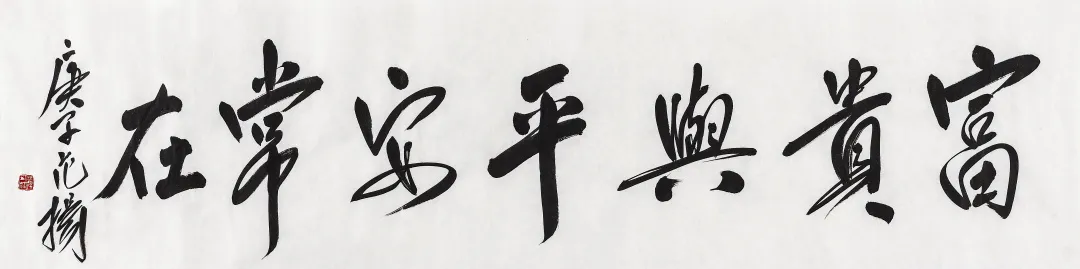 富貴與平安常在
庚子范揚